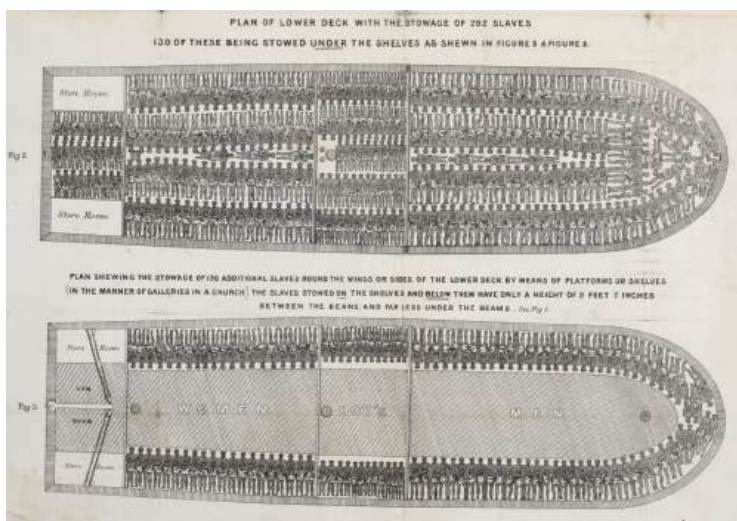 PLAN OF LOWER DECK WITH THE STOWAGE OF 292 SLAVES
130 OF THESE BEING STOWED UNDER THE SHELVES AS SHEWN IN FIGURES & FIGURE 5.
Store Room
Fig 2.
Store Room
PLAN SHEWING THE STOWAGE OF 130 ADDITIONAL SLAVES ROUND THE WINGS OR SIDES OF THE LOWER DECK BY MEANS OF PLATFORMS OR SHELVES
(IN THE MANNER OF GALLERIES IN A CHURCH) THE SLAVES STOWED ON THE SHELVES AND BELOW THEM HAVE ONLY A HEIGHT OF 2 FEET 7 INCHES
BETWEEN THE BEAMS AND FAR LESS UNDER THE BEAMS. See Fig 1.
Store Room
Fig 3.
WOMEN
BOYS
MEN
ROOM
Store Room